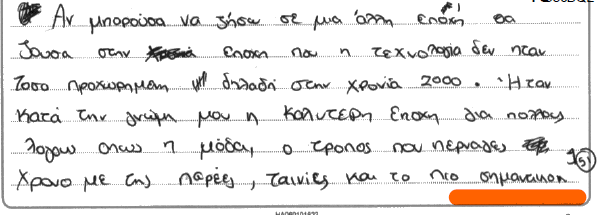 Αν μπορούσα να ζήσω σε μια άλλη εποχή θα
ζουσα στην εποχη που η τεχνολογία δεν ηταν
τοσο προχωρημενη δηλαδή στην χρονία 2000. Ήταν
κατά την γνώμη μου η καλυτερη εποχη για πολλους
λογους οπως η μόδα, ο τροπος που περναδες
χρονο με της παρέες, ταινίες και το πιο σημαντικοη